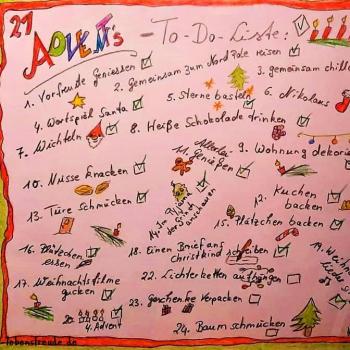 21 ADVENTs - To-Do-Liste:
1. Vorfreude Geniessen
2. Gemeinsam zum Nordpole reisen
3. gemeinsam chill
4. Wortspiel Santa
5. Sterne basteln
6. Nikolaus
7. Wichteln
8. Heiße Schokolade drinken
9. Wohnung dekori
10. Nüsse Knacken
11. Allerlei Genießen
12. Kuchen backen
13. Türe Schmücken
15. Plätzchen backen
16. Plätzchen essen
17. Weihnachtsfilme gucken
18. Einen Brief ans christkind schreiben
19. Weih
Lieder
20. 4. Advent
22. Lichterketten aufhängen
23. Geschenke Verpacken
24. Baum schmücken
lebensfreude.de